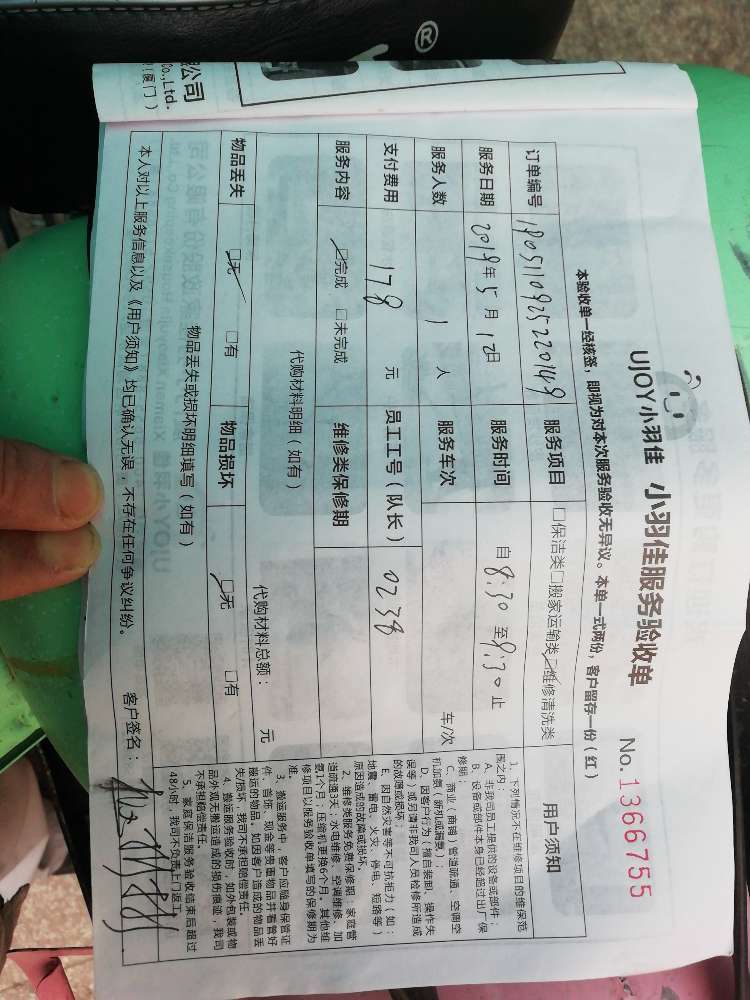 ®
限公司
Co.,Ltd.
(厦门)
UJOY小羽佳 小羽佳服务验收单 No.1366755
本验收单一经核签,即视为对本次服务验收无异议。本单一式两份,客户留存一份(红)
订单编号 服务项目 □保洁类□搬家运输类☑维修清洗类
服务日期 2019年5月12日 服务时间 自8:30至9:30止
服务人数 1 人 服务车次 车/次
支付费用 178 元 员工工号(队长) 0238
服务内容 ☑完成 □未完成 维修类保修期
代购材料明细(如有) 代购材料总额: 元
物品丢失 ☑无 □有 物品损坏 ☑无 □有
物品丢失或损坏明细填写(如有)
本人对以上服务信息以及《用户须知》均已确认无误,不存在任何争议纠纷。 客户签名:
用户须知
1、下列情况不在维修项目的维保范
围之内:
A、非我司员工提供的设备或部件;
B、设备或部件本身已经超过出厂保
修期;
C、商业(商铺)管道疏通、空调空
机加氨(新机或漏氨);
D、因客户行为(擅自装潢、操作失
保等)或另请非我司人员检修所造成
的故障或损坏;
E、因自然灾害等不可抗拒力(如:
地震、雷电、火灾、停电、短路等)
原因造成的故障或损坏。
2、维修类服务免费保修期:家庭管
道疏通3天;水电维修、空调维修、加
氨1个月;压缩机更换6个月。其他维
修项目以服务验收单填写的保修期为
准。
3、搬运服务中,客户应随身保管证
件、首饰、现金等贵重物品并看管好
搬运的物品,如因客户造成的物品丢
失/损坏,我司不承担赔偿责任。
4、搬运服务验收时,如外包装或物
品外观无搬运造成的损伤痕迹,我司
不承担赔偿责任。
5、家庭保洁服务验收结束后超过
48小时,我司不负责上门返工。